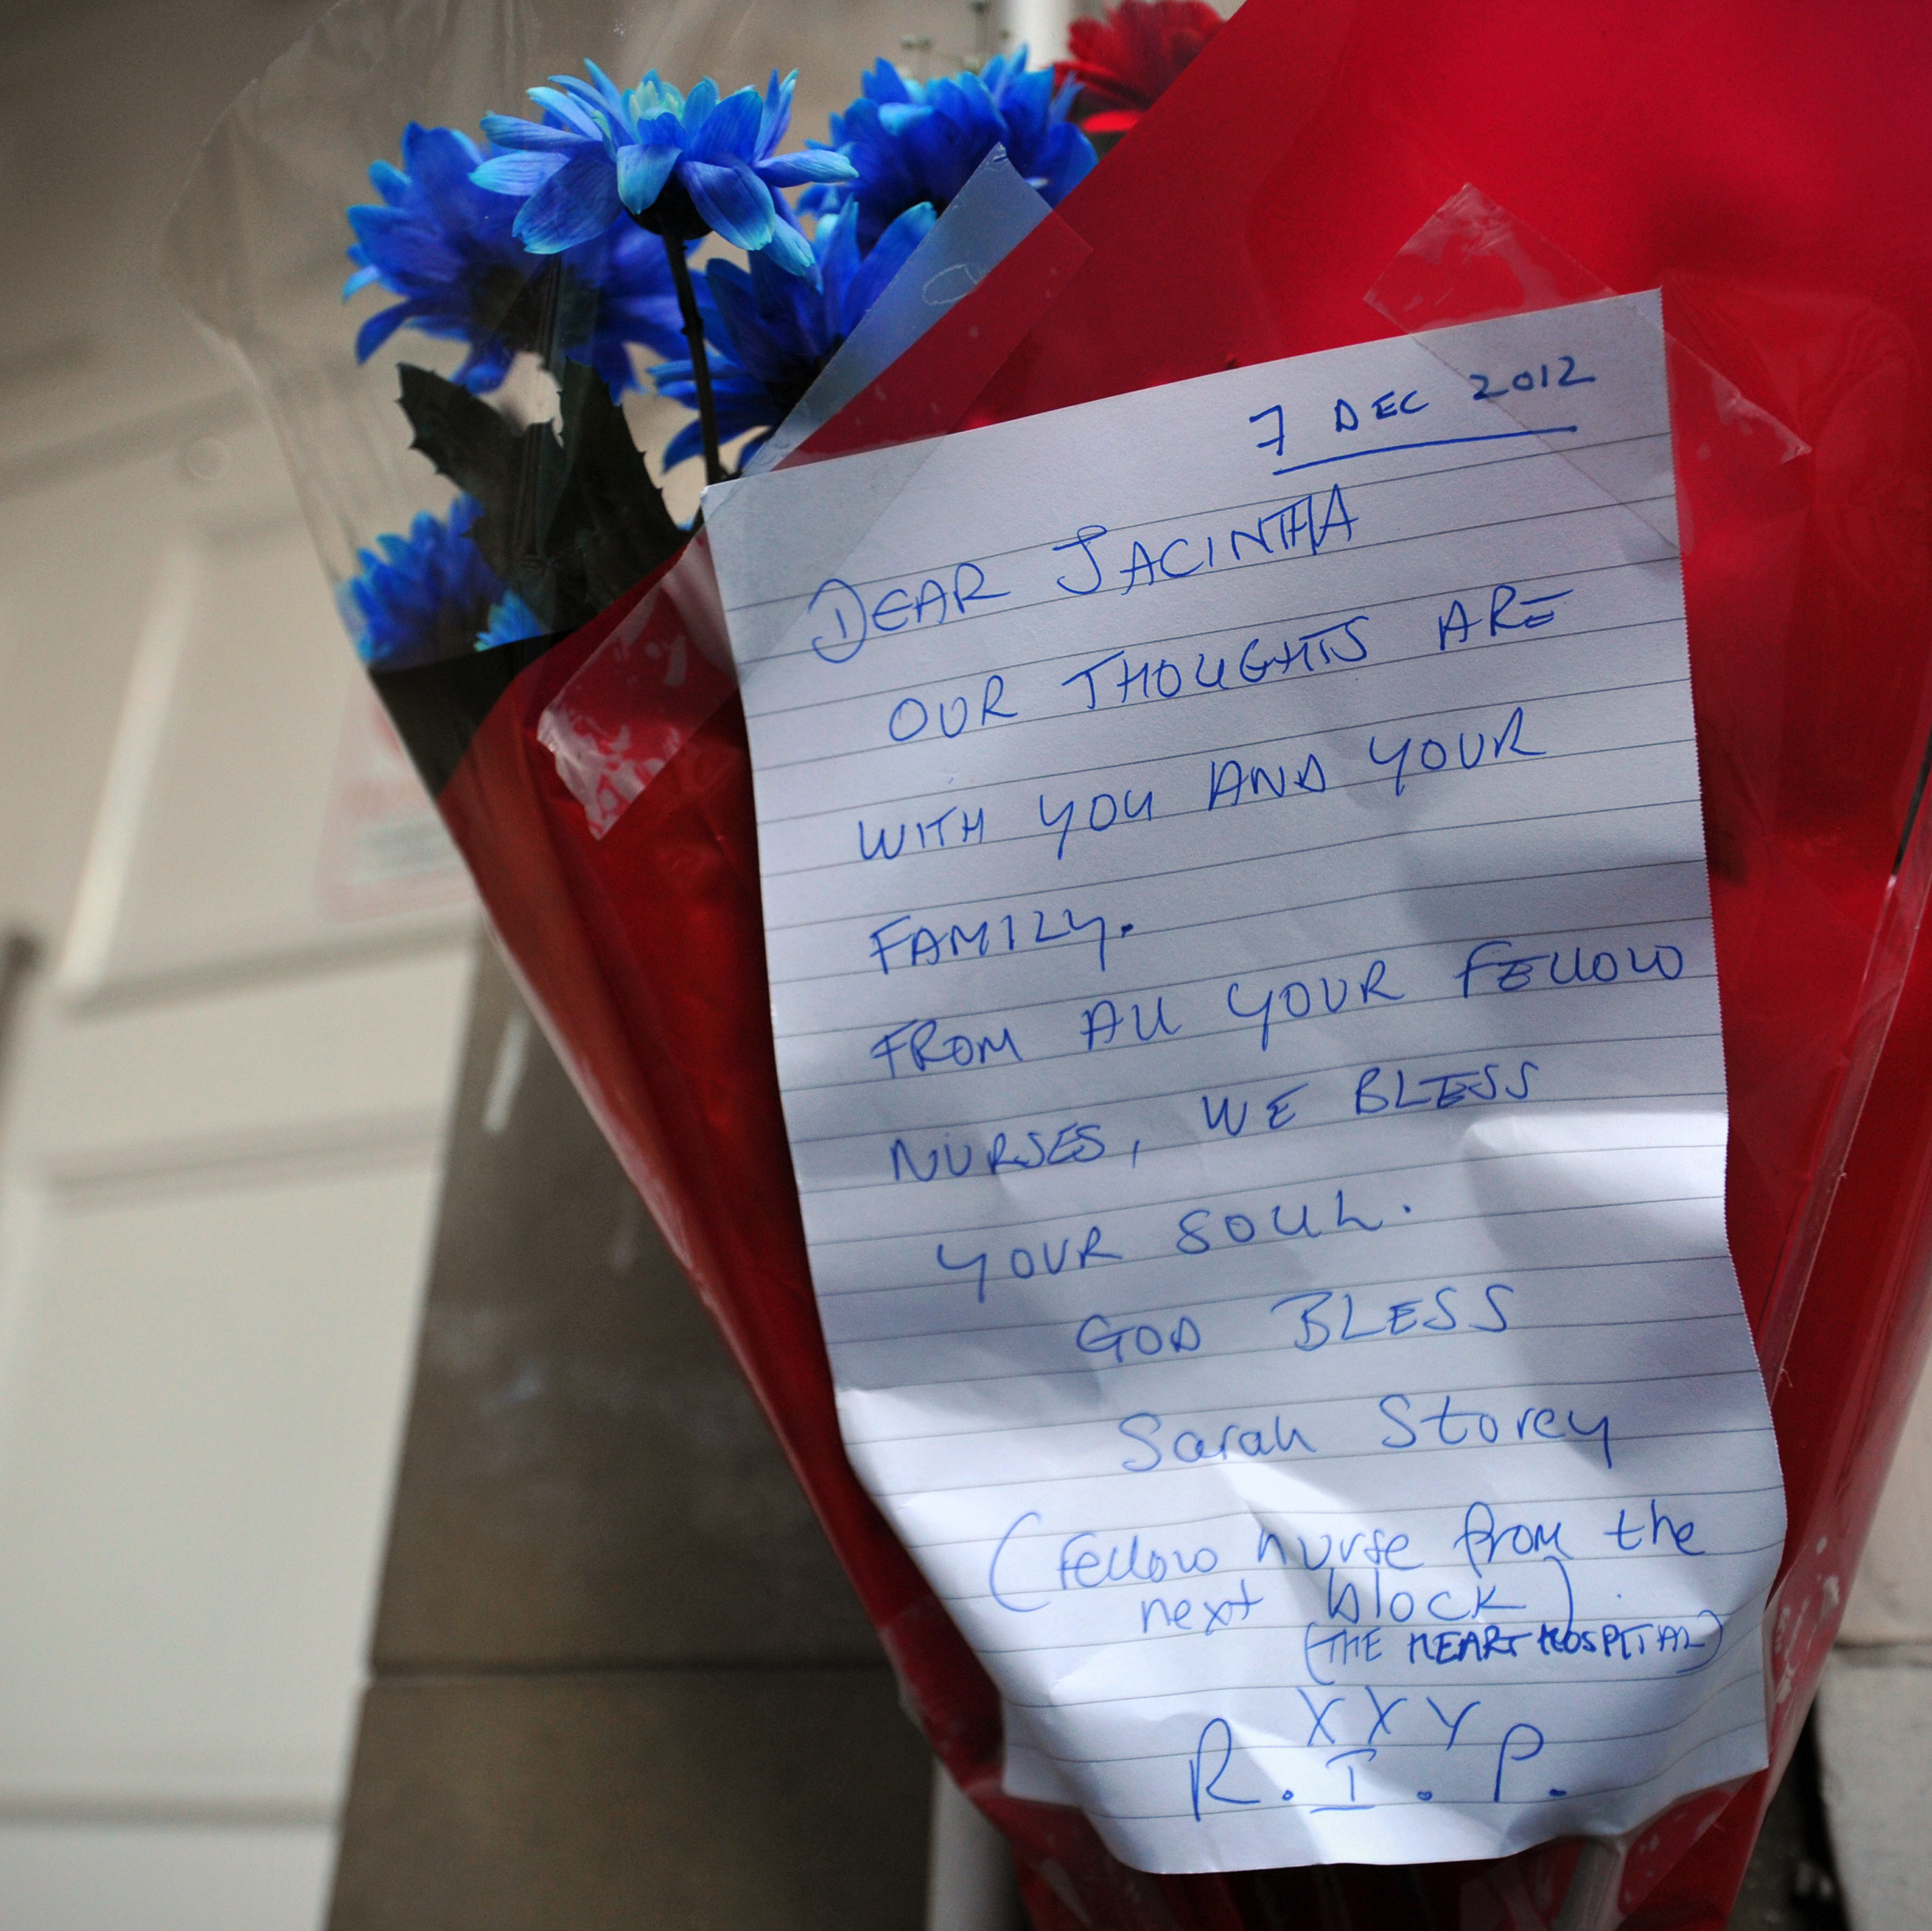 7 DEC 2012
DEAR JACINTHA
OUR THOUGHTS ARE
WITH YOU AND YOUR
FAMILY.
FROM ALL YOUR FELLOW
NURSES, WE BLESS
YOUR SOUL.
GOD BLESS
Sarah Storey
(fellow nurse from the
next block).
(THE HEART HOSPITAL)
XXY
R.I.P.